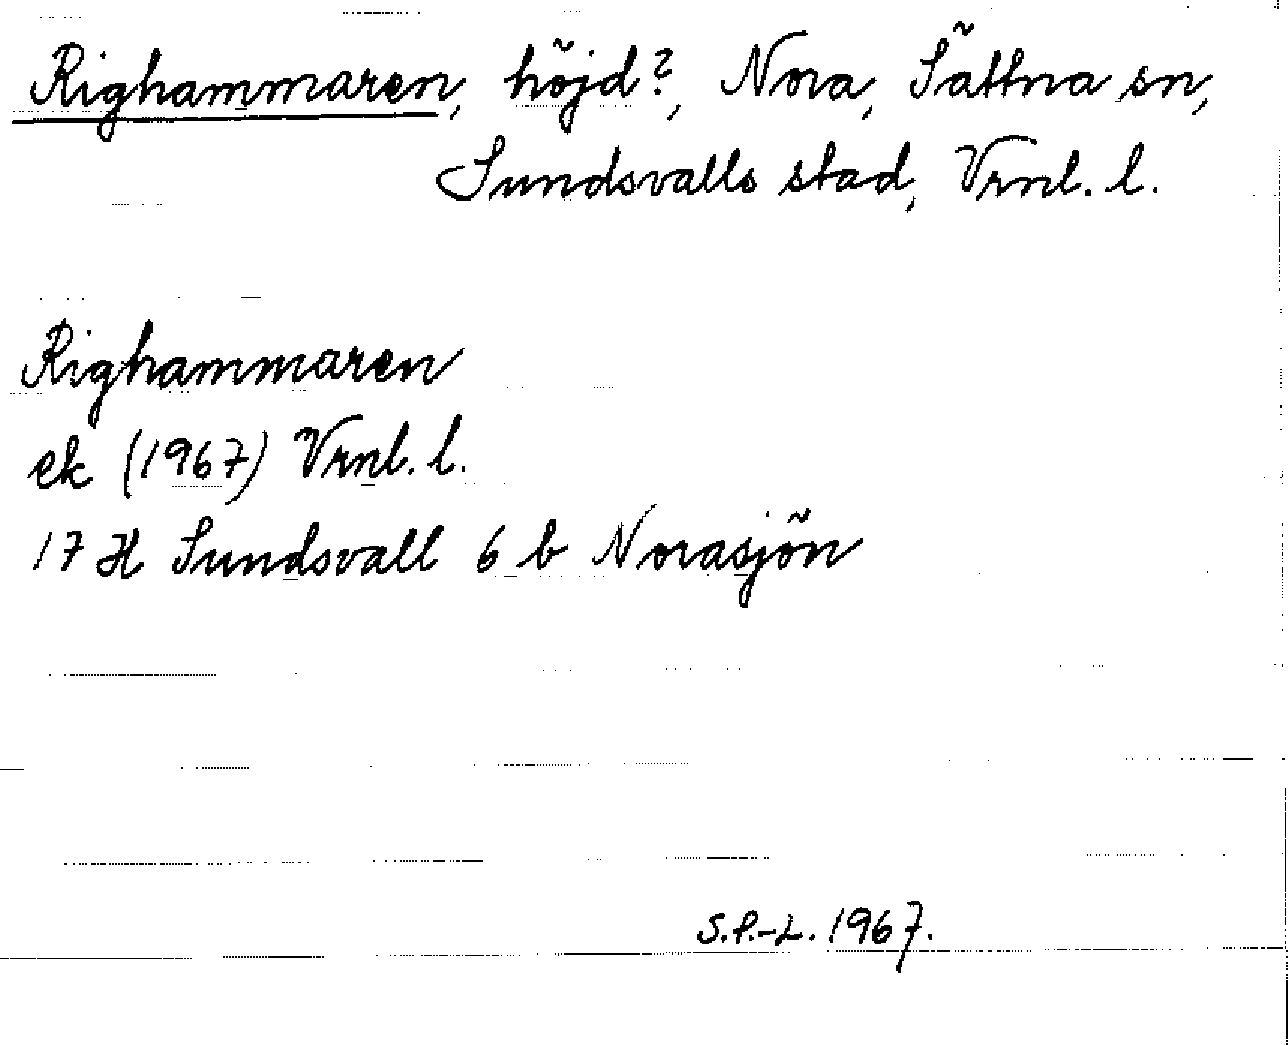 Righammaren, höjd?, Nora, Sättna sn,
Sundsvalls stad, Vrnl. l.
Righammaren
ek (1967) Vrnl. l.
17 H Sundsvall 6 b Norasjön
S.P.-L. 1967.